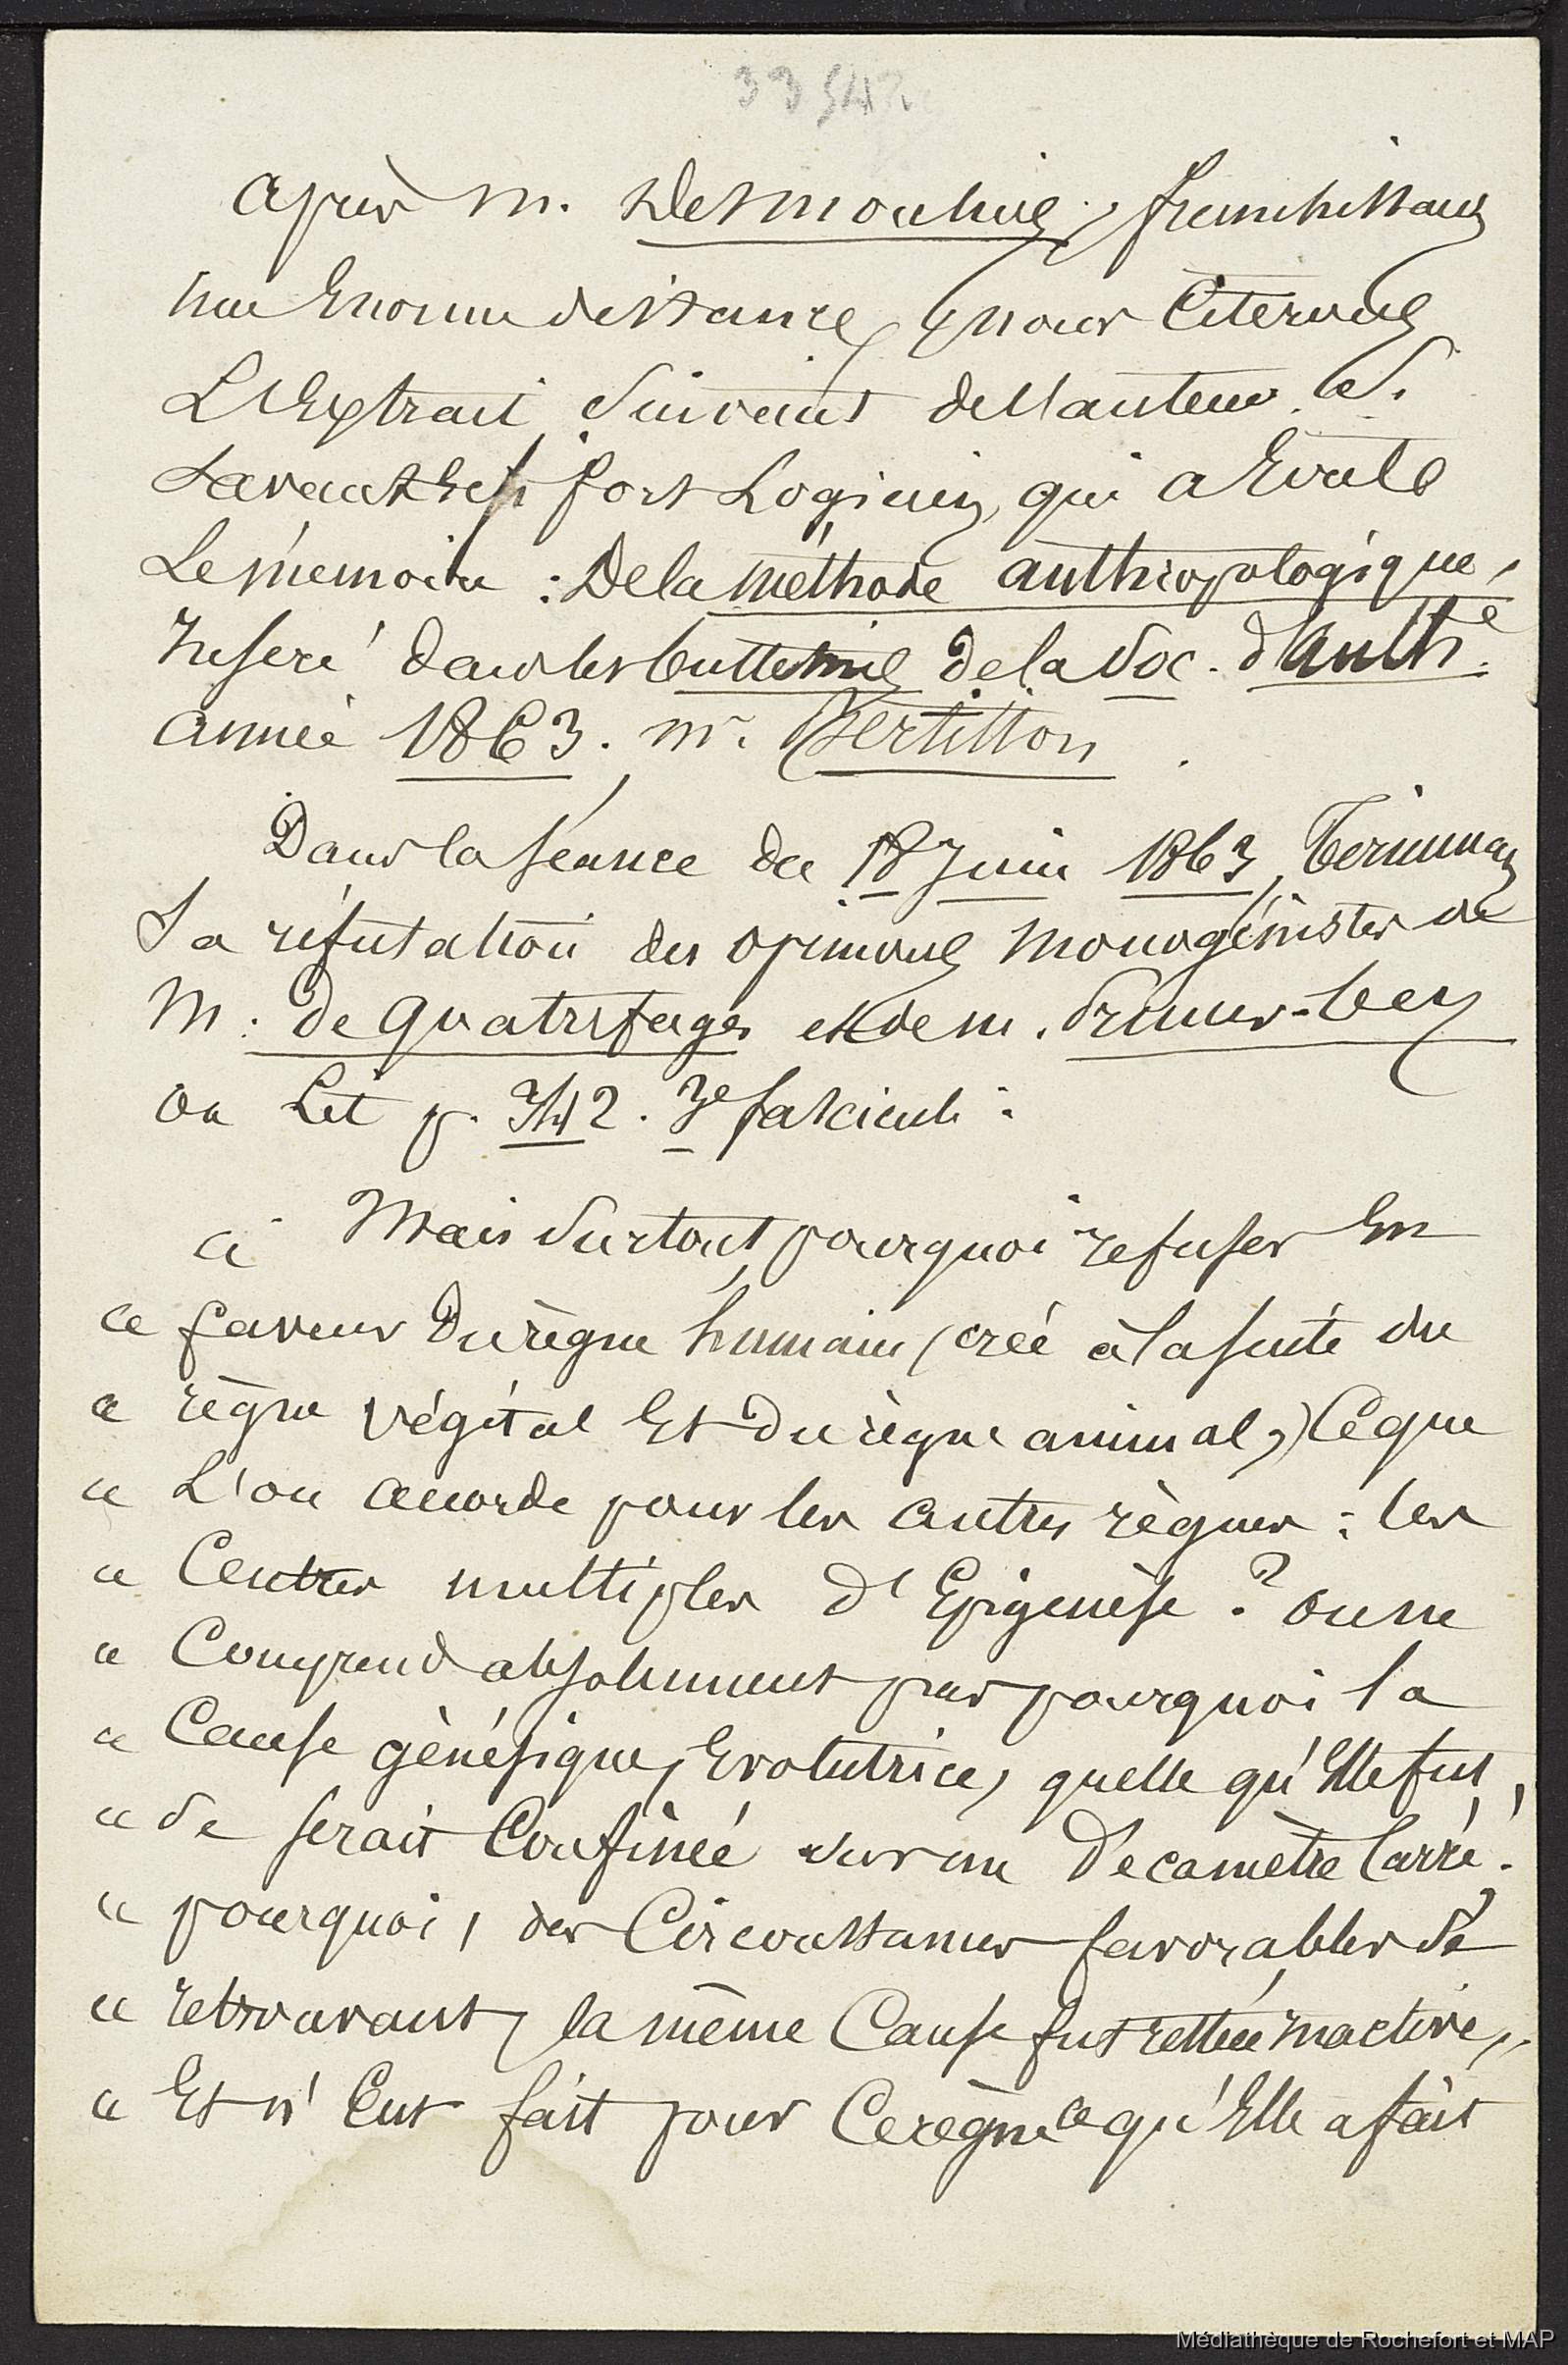 Après M. Desmoulins, franchissant
une Enorme distance, nous Citerons
L'Extrait suivant de l'auteur, si
savant et si fort Logicien, qui a Ecrit
Le mémoire : De la méthode anthropologique,
Inseré dans les bulletins de la Soc. d'Anthie
année 1863. Mr. Bertillon.
Dans la séance du 18 Juin 1863, Terminant
Sa réfutation des opinions monogénistes de
M. de Quatrefages et de M. Pruner-bey
on Lit p. 342. 3e fascicule :
" Mais Surtout, pourquoi refuser En
" faveur Du règne humain (créé à la suite du
" règne végétal Et Du règne animal,) Ce que
" L'on accorde pour les autres règnes : les
" Centres multiples d'Epigenèse ? on ne
" Comprend absolument pas pourquoi la
" Cause génésique, Evolutrice, quelle qu'Elle fut,
" Se serait Confinée sur un Décamètre Carré !
" pourquoi, des Circonstances favorables Se
" retrouvant, la même Cause fut restée inactive,
" Et n'Eut fait pour Ce règne ce qu'Elle a fait
Médiathèque de Rochefort et MAP